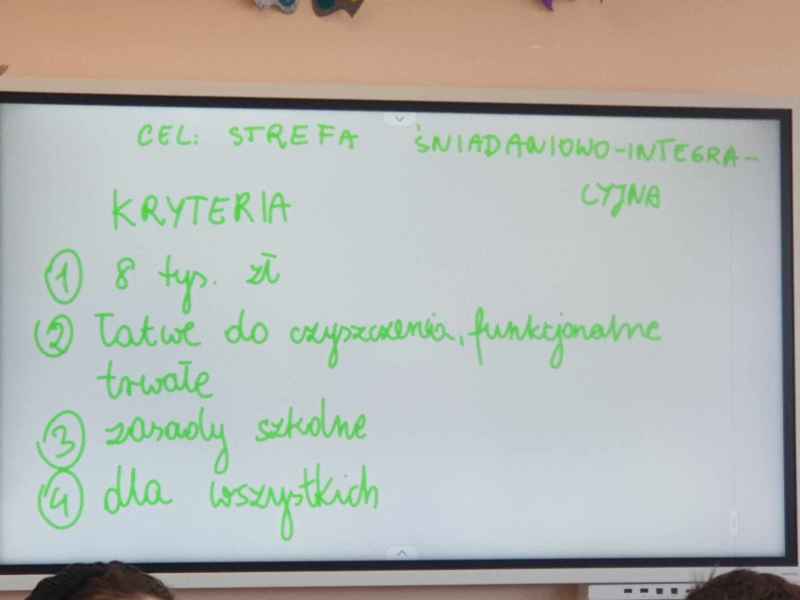 CEL: STREFA ŚNIADANIOWO-INTEGRA-
CYJNA
KRYTERIA
1 8 tys. zł
2 łatwe do czyszczenia, funkcjonalne
trwałe
3 zasady szkolne
4 dla wszystkich